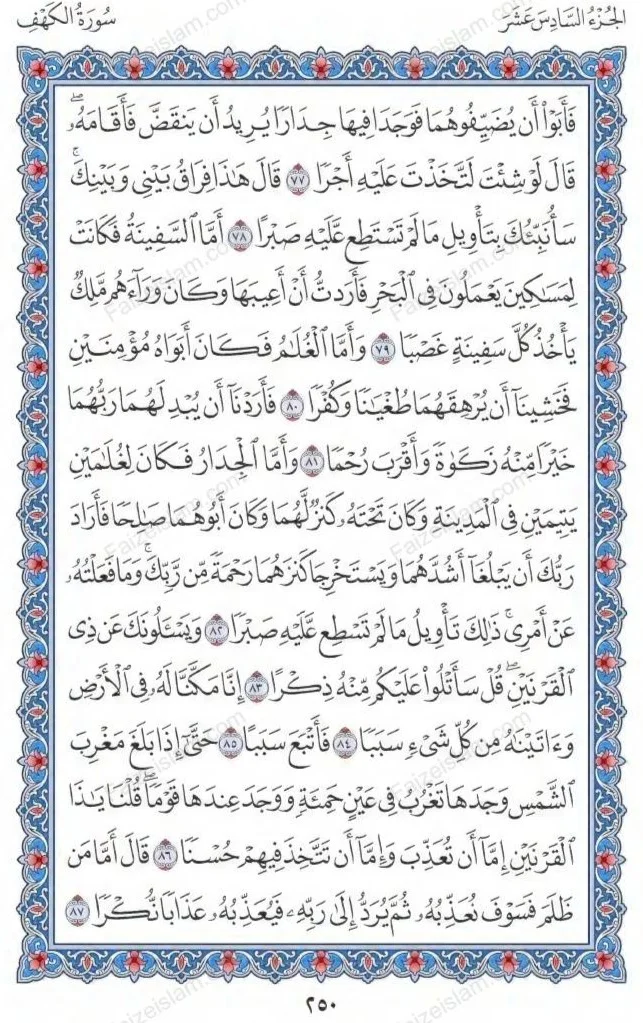 الجُزْءُ السَّادِسَ عَشَرَ
سُورَةُ الكَهْفِ
فَأَبَوْا۟ أَن يُضَيِّفُوهُمَا فَوَجَدَا فِيهَا جِدَارًا يُرِيدُ أَن يَنقَضَّ فَأَقَامَهُۥۖ
قَالَ لَوْ شِئْتَ لَتَّخَذْتَ عَلَيْهِ أَجْرًا ٧٧ قَالَ هَٰذَا فِرَاقُ بَيْنِى وَبَيْنِكَۚ
سَأُنَبِّئُكَ بِتَأْوِيلِ مَا لَمْ تَسْتَطِع عَّلَيْهِ صَبْرًا ٧٨ أَمَّا ٱلسَّفِينَةُ فَكَانَتْ
لِمَسَٰكِينَ يَعْمَلُونَ فِى ٱلْبَحْرِ فَأَرَدتُّ أَنْ أَعِيبَهَا وَكَانَ وَرَآءَهُم مَّلِكٌ
يَأْخُذُ كُلَّ سَفِينَةٍ غَصْبًا ٧٩ وَأَمَّا ٱلْغُلَٰمُ فَكَانَ أَبَوَاهُ مُؤْمِنَيْنِ
فَخَشِينَآ أَن يُرْهِقَهُمَا طُغْيَٰنًا وَكُفْرًا ٨٠ فَأَرَدْنَآ أَن يُبْدِلَهُمَا رَبُّهُمَا
خَيْرًا مِّنْهُ زَكَوٰةً وَأَقْرَبَ رُحْمًا ٨١ وَأَمَّا ٱلْجِدَارُ فَكَانَ لِغُلَٰمَيْنِ
يَتِيمَيْنِ فِى ٱلْمَدِينَةِ وَكَانَ تَحْتَهُۥ كَنزٌ لَّهُمَا وَكَانَ أَبُوهُمَا صَٰلِحًا فَأَرَادَ
رَبُّكَ أَن يَبْلُغَآ أَشُدَّهُمَا وَيَسْتَخْرِجَا كَنزَهُمَا رَحْمَةً مِّن رَّبِّكَۚ وَمَا فَعَلْتُهُۥ
عَنْ أَمْرِىۚ ذَٰلِكَ تَأْوِيلُ مَا لَمْ تَسْطِع عَّلَيْهِ صَبْرًا ٨٢ وَيَسْـَٔلُونَكَ عَن ذِى
ٱلْقَرْنَيْنِۖ قُلْ سَأَتْلُوا۟ عَلَيْكُم مِّنْهُ ذِكْرًا ٨٣ إِنَّا مَكَّنَّا لَهُۥ فِى ٱلْأَرْضِ
وَءَاتَيْنَٰهُ مِن كُلِّ شَىْءٍ سَبَبًا ٨٤ فَأَتْبَعَ سَبَبًا ٨٥ حَتَّىٰٓ إِذَا بَلَغَ مَغْرِبَ
ٱلشَّمْسِ وَجَدَهَا تَغْرُبُ فِى عَيْنٍ حَمِئَةٍ وَوَجَدَ عِندَهَا قَوْمًاۖ قُلْنَا يَٰذَا
ٱلْقَرْنَيْنِ إِمَّآ أَن تُعَذِّبَ وَإِمَّآ أَن تَتَّخِذَ فِيهِمْ حُسْنًا ٨٦ قَالَ أَمَّا مَن
ظَلَمَ فَسَوْفَ نُعَذِّبُهُۥ ثُمَّ يُرَدُّ إِلَىٰ رَبِّهِۦ فَيُعَذِّبُهُۥ عَذَابًا نُّكْرًا ٨٧
٢٥٠
Faizeislam.com